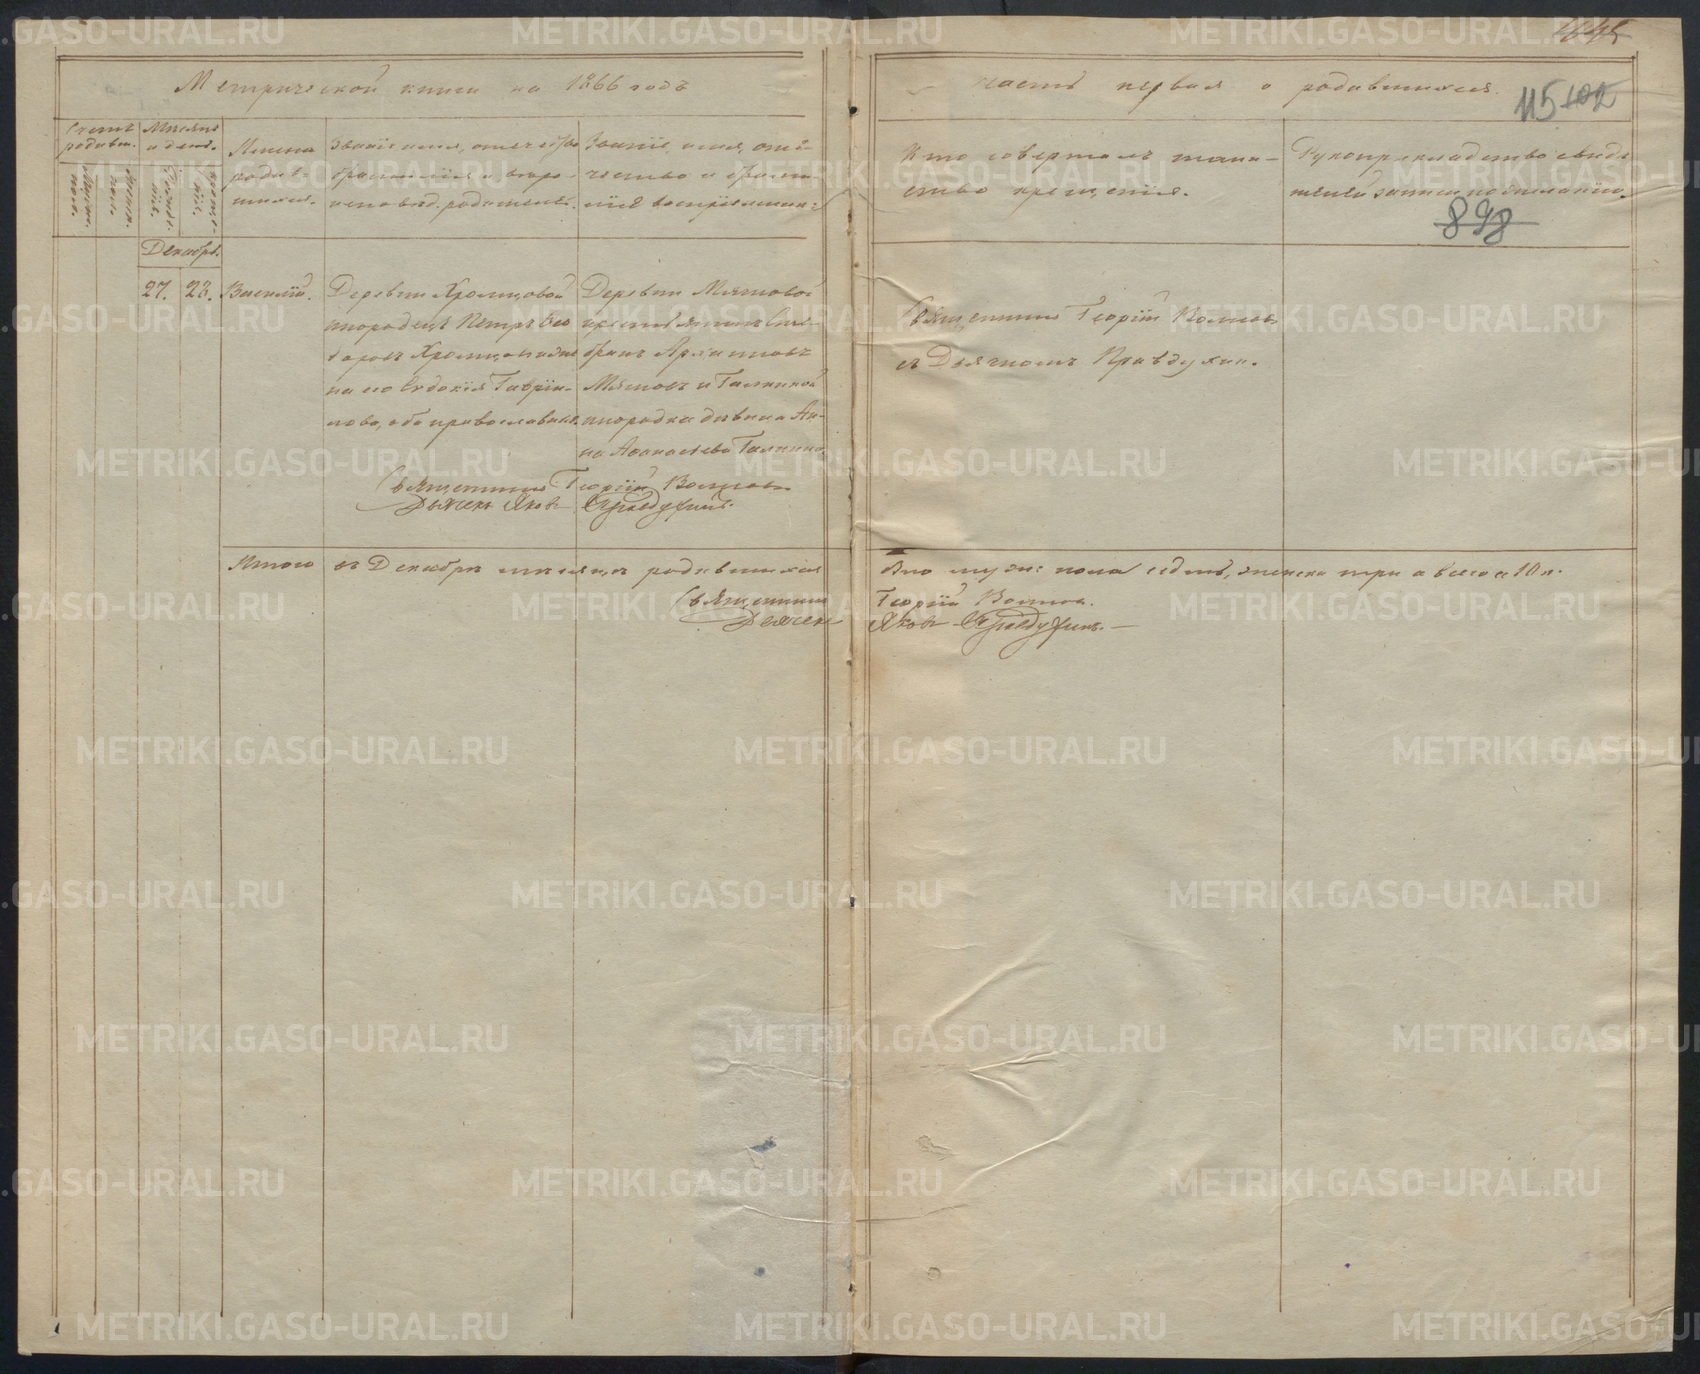 Метрической книги на 1866 годъ
часть первая о родившихся.
115 102
Счетъ родивш.
Мѣсяцъ и день.
Имена родив-
шихся.
Званіе, имя, отчество
фамилія и, вѣро-
исповѣд. родителей.
Званіе, имя, отче-
чество и фами-
лія воспріемник:
Кто совершалъ таин-
ство крещенія.
Рукоприкладство свидѣ-
телей записи по желанію.
898
Декабрь.
27. 23. Василій.
Деревни Хромцовой
инородецъ Петръ Ѳео
доровъ Хромцовъ и же
на его Евдокія Гавріи-
лова, оба православные.
Деревни Мягковой
крестьянинъ
Мягковъ и Галкиной
инородка дѣвица Ан-
на Аѳанасьева Галкина
Священникъ Георгій
Дьячекъ Яковъ Правдухинъ.
Священникъ Георгій
съ Дьячкомъ Правдухин.
Итого въ Декабрѣ мѣсяцѣ родившихся
муж: пола седмь, женска три а всего 10 ч.
Священникъ Георгій
Дьячекъ Яковъ Правдухинъ.
METRIKI.GASO-URAL.RU